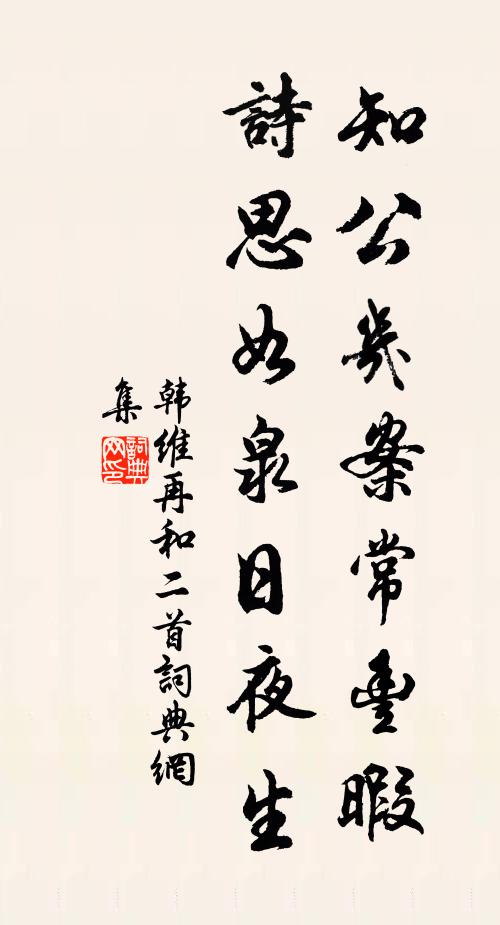 知公幾案常豐暇
詩思如泉日夜生
韩維再和二首詞典網
集
詞典网印